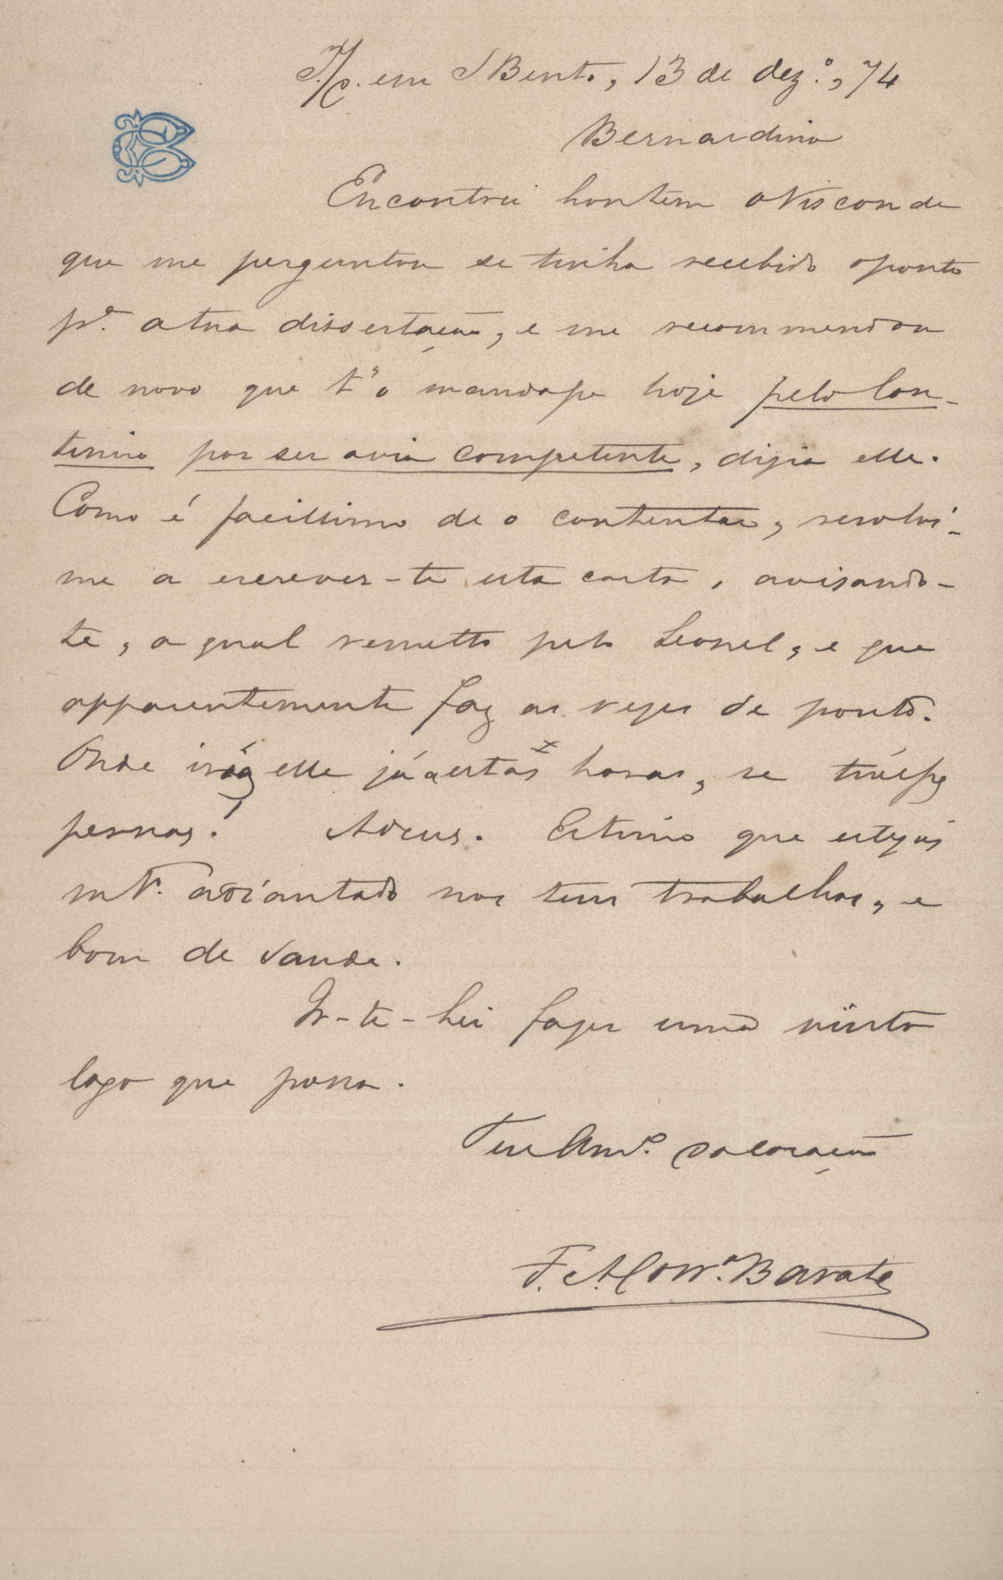 S/c. em S Bento, 13 de dez.º, 74
CB
Bernardino
Encontrei hontem o Visconde
que me perguntou se tinha recebido o ponto
pª. a tua dissertação, e me recommendou
de novo que t'o mandasse hoje pelo Con-
tinuo por ser a via competente, dizia elle.
Como é facillimo de o contentar, resolvi-
me a escrever-te esta carta, avisando-
te, a qual remetto pelo Leonel, e que
apparentemente faz as vezes de ponto.
Onde irá elle já a estas horas, se tivesse
pernas? Adeus. Estimo que estejas
mtº. adiantado nos teus trabalhos, e
bom de saude.
Ir-te-hei fazer uma visita
logo que possa.
Teu Amº. do coração
F. A. Corrª. Barata